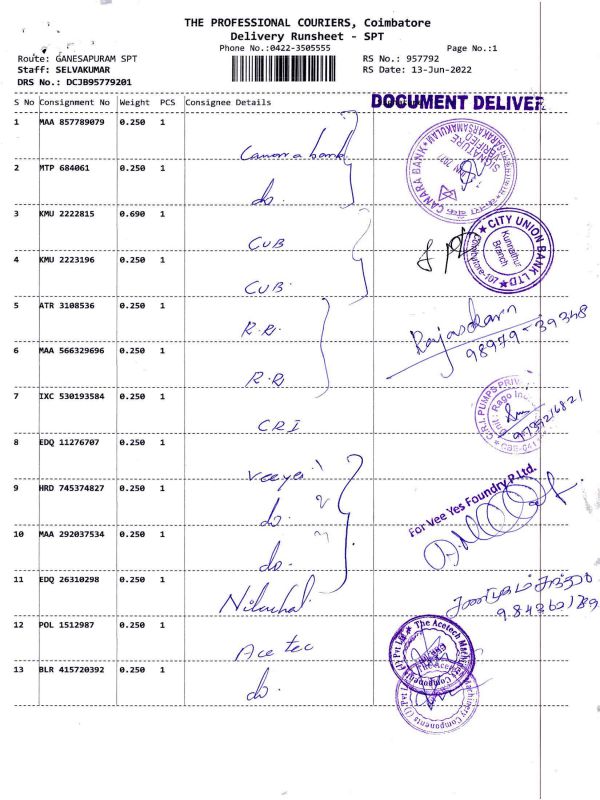 THE PROFESSIONAL COURIERS, Coimbatore
Delivery Runsheet - SPT
Phone No.:0422-3505555
Page No.:1
Route: GANESAPURAM SPT
RS No.: 957792
Staff: SELVAKUMAR
RS Date: 13-Jun-2022
DRS No.: DCJB95779201
S No Consignment No Weight PCS Consignee Details
DOCUMENT DELIVER
1 MAA 857789079 0.250 1
Canara bank
CANARA BANK
SIGNATURE VERIFIED
2 MTP 684061 0.250 1
do.
3 KMU 2222815 0.690 1
CUB
CITY UNION BANK LTD
Kunnathur Branch
Coimbatore-107
4 KMU 2223196 0.250 1
CUB
5 ATR 3108536 0.250 1
R.R.
98979-39348
6 MAA 566329696 0.250 1
R.R
7 IXC 530193584 0.250 1
CRI
C.R.I. PUMPS PRIV
8 EDQ 11276707 0.250 1
9 HRD 745374827 0.250 1
do.
For Vee Yes Foundry P.Ltd.
10 MAA 292037534 0.250 1
do.
11 EDQ 26310298 0.250 1
12 POL 1512987 0.250 1
Ace tec
The Acetech Machinery Components (I) Pvt Ltd
13 BLR 415720392 0.250 1
do.
Machinery Components (I) Pvt L